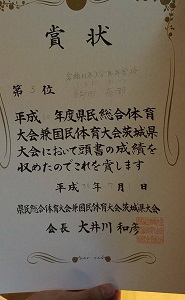 賞状
第3位
平成 年度県民総合体育
大会兼国民体育大会茨城県
大会において頭書の成績を
収めたのでこれを賞します
平成 年7月1日
県民総合体育大会兼国民体育大会茨城県大会
会長 大井川和彦